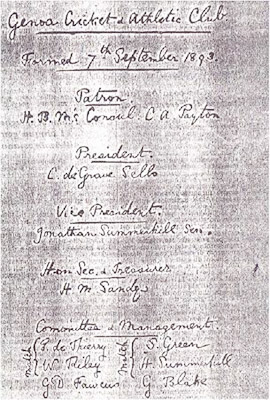 Genoa Cricket & Athletic Club
Formed 7th September 1893.
Patron
H. B. M's Consul C A Payton
President.
C. de Grave Sells
Vice President.
Jonathan Summerhill Sen.
Hon Sec. & Treasurer
H. M. Sandys
Committee & Management.
De Thierry S. Green
W. Riley H. Summerhill
G. D. Fawcus G Blake